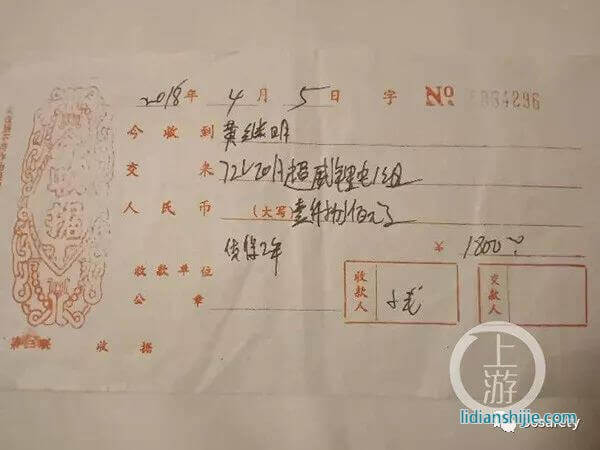 2018年 4月 5日 字 No 084296
今收到 黄继明
交来 72V20A超威锂电1组
人民币 (大写) 壹仟捌佰元
质保2年 ¥ 1800
收款单位 收款人 交款人
公章
第三联 收据
上游
lidianshijie.com